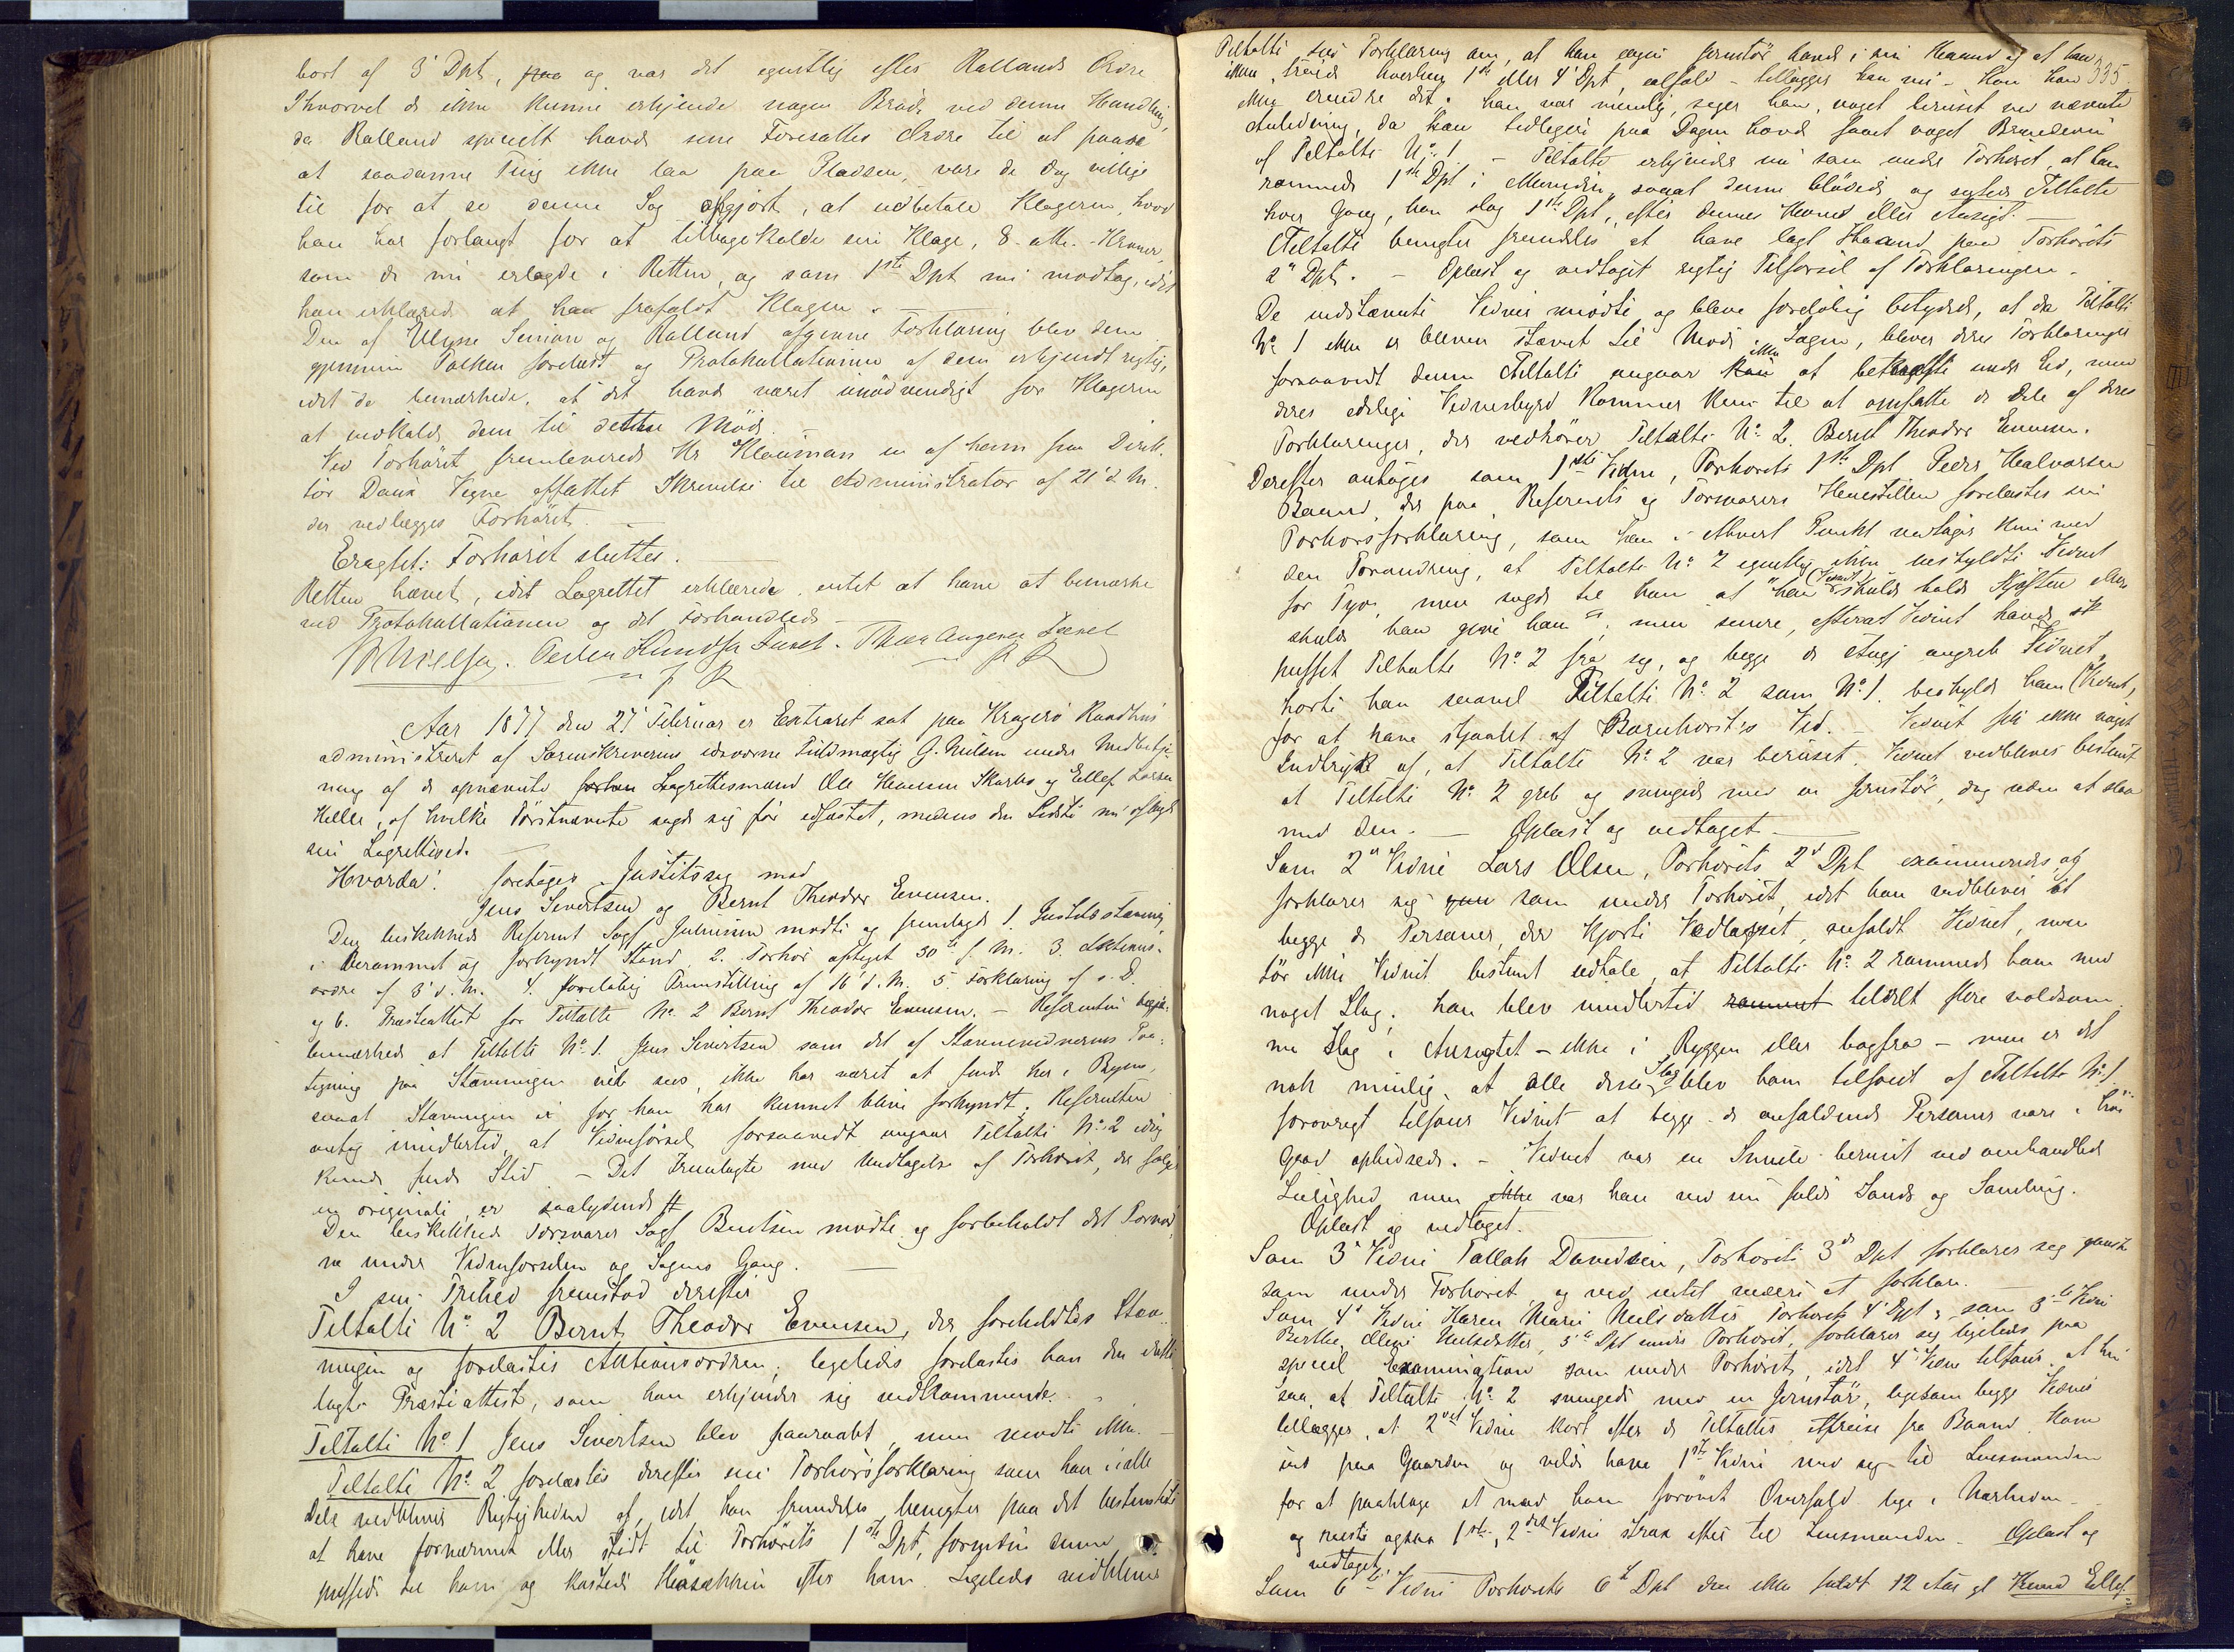 bort af 3' Dpt, paa og var det egentlig efter Rallands Ordre
Ihvorvel de ikke kunne erkjende nogen Bröde ved denne Handling,
da Ralland specielt havde sine Foresattes Ordre til at paase
at saadanne Ting ikke laa paa Pladsen, vare de dog villige
til for at se denne Sag afgjort, at udbetale Klageren, hvad
han har forlangt for at tilbagekalde sin Klage, 8 - otte - Kroner,
som de nu erlagde i Retten, og som 1ste Dpt nu modtog, idet
han erklærede at han frafaldt Klagen. —
Den af Ulysse Simian og Ralland afgivne Forklaring blev dem
gjennem Tolken forelæst og Protokollationen af dem erkjendt rigtig,
idet de bemærkede, at det havde været unödvendigt for Klageren
at indkalde dem til dette Möde. —
Ved Forhöret fremleverede Hr Klouman en af ham paa Direk-
tör Daux Vegne affattet Skrivelse til Administrator af 21' d. M.
der vedlægges Forhöret. —
Eragtet: Forhöret sluttes. —
Retten hævet, idet Lagrettet erklærede intet at have at bemærke
ved Protokollationen og det Forhandlede —
Nielsen. Peder Knudsen Tveet. Thor Augen Tveet
m f P P P
Aar 1877 den 27' Februar er Extraret sat paa Kragerö Raadhus
administreret af Sorenskriverens edsvorne Fuldmægtig G. Nilsen under Medbetje-
ning af de opnævnte Lagrettesmænd Ole Hansen Skarbo og Ellef Larsen
Helle, af hvilke Förstnævnte sagde sig för edfæstet, medens den Sidste nu aflagde
sin Lagretteed.
Hvorda! foretages Justitssag mod
Jens Sivertsen og Bernt Theodor Evensen.
Den beskikkede Referent Sagf Juliussen mödte og fremlagde 1. Justitsstævning
i berammet og forkyndt Stand, 2. Forhör optaget 30te f. M. 3. Aktions-
ordre af 3' d. M. 4. foreløbig Fremstilling af 16' d. M. 5. Forklaring af s. D.
og 6. Præsteattest for Tiltalte No 2 Bernt Theodor Evensen. — Referenten
bemærkede at Tiltalte No 1. Jens Sivertsen som det af Stævnevidnernes Paa-
tegning paa Stævningen vil sees, ikke har været at finde her i Byen,
saaat Stævningen ei for ham har kunnet blive forkyndt. Referenten
antog imidlertid, at Vidneførsel forsaavidt angaar Tiltalte No 2 idag
kunde finde Sted. — Det Fremlagte med Undtagelse af Forhöret, der fölger
in originali er saalydende #
Den beskikkede Forsvarer Sagf Bentsen mödte og forbeholdt det Fornød-
ne under Vidneførselen og Sagens Gang. —
I sin Frihed fremstod derefter
Tiltalte No 2 Bernt Theodor Evensen, der foreholdtes Stæv-
ningen og forelæstes Aktionsordren; ligeledes forelæstes han den idag
lagte Præsteattest, som han erkjender sig vedkommende. —
Tiltalte No 1 Jens Sivertsen blev paaraabt, men mødte ikke. —
Tiltalte No 2 forelæstes derefter sin Forhörsforklaring som han i alle
Dele vedbliver Rigtigheden af, idet han fremdeles benegter paa det bestemteste
at have fornærmet eller stödt til Forhörets 1ste Dpt, forinden denne
puffede til ham og kastede Høsækken efter ham. Ligeledes vedbliver
335.
Tiltalte sin Forklaring om, at han ogsaa Jernstör havde i sin Haand og at han
ikke saarede hverken 1ste eller 4' Dpt, ialfald — tillægger han nu — kan han
ikke erindre det; han var nemlig, siger han, noget beruset ved nævnte
Anledning, da han tidligere paa Dagen havde faaet noget Brændeviin
af Tiltalte No 1 — Tiltalte erkjender nu som under Forhöret, at han
rammede 1ste Dpt i Munden, saaat denne blödede, og sigtede Tiltalte
hver Gang, han slog 1ste Dpt, efter dennes Hoved eller Ansigt. —
Tiltalte benegter fremdeles at have lagt Haand paa Forhörets
2' Dpt. — Oplæst og vedtaget rigtig Tilførsel af Forklaringen. —
De indstævnte Vidner mødte og bleve foreløbig betydede, at da Tiltalte
No 1 ikke er bleven stævnet til Møde i Sagen, bliver deres Forklaringer
forsaavidt denne Tiltalte angaar ikke at bekræfte under Ed, men
deres edelige Vidnesbyrd kommer kun til at omfatte de Dele af deres
Forklaringer, der vedkører Tiltalte No 2. Bernt Theodor Evensen.
Derefter antoges som 1ste Vidne, Forhörets 1ste Dpt Peder Halvorsen
Baand, der paa Referents og Forsvarers Henstillen forelæstes sin
Forhörsforklaring, som han i ethvert Punkt vedtager kun med
den Forandring, at Tiltalte No 2 egentlig ikke beskyldte Vidnet
for Tyv, men sagde til ham at "han (Vidnet) skulde holde Kjæften ellers
skulde han give ham", men senere, efterat Vidnet havde
puffet Tiltalte No 2 fra sig, og begge de Andre angreb Vidnet,
hørte han saavel Tiltalte No 2 som No 1. beskylde ham (Vidnet)
for at have stjaalet af Barnhorst's Ved. — Vidnet fik ikke noget
Indtryk af, at Tiltalte No 2 var beruset. Vidnet vedbliver bestemt
at Tiltalte No 2 greb og svingede med en Jernstör, dog uden at slaa
med den. — Oplæst og vedtaget. —
Som 2' Vidne Lars Olsen, Forhörets 2' Dpt examineredes, og
forklarer sig som under Forhöret, idet han vedbliver at
begge de Personer, der kjørte Vedlasset, anfaldt Vidnet, men
tör ikke Vidnet bestemt udtale, at Tiltalte No 2 rammede ham med
noget Slag; han blev imidlertid rammet tildelt flere voldsom-
me Slag i Ansigtet — ikke i Ryggen eller bagfra — men er det
nok muligt, at alle disse Slag blev ham tilføiet af Tiltalte No 1.
forøvrigt tilføier Vidnet at begge de anfaldende Personer vare i høi
Grad ophidsede. — Vidnet var en Smule beruset ved omhandlede
Leilighed, men ikke var han ved sin fulde Sands og Samling.
Oplæst og vedtaget.
Som 3' Vidne Tallak Davidsen, Forhörets 3' Dpt forklarer sig ganske
som under Forhöret, og ved intet videre at forklare. —
Som 4' Vidne Karen Marie Nielsdatter Forhörets 4' Dpt, som
Berthe Nielsdatter, 5' Dpt under Forhöret, forklarer sig ligeledes paa
speciel Examination som under Forhöret, idet 4' Vidne tilføier, at hun
saa, at Tiltalte No 2 svingede med en Jernstör, ligesom begge Vidner
tillægger, at 2det Vidne kort efter de Tiltaltes Afreise fra Baand kom
ind paa Gaarden og vilde have 1ste Vidne med sig til Lensmanden
for at paaklage et mod ham forøvet Overfald lige i Nærheden —
og reiste ogsaa 1ste, 2det Vidne strax efter til Lensmanden — Oplæst og
vedtaget. —
Som 6' Vidne Forhörets 6' Dpt den ikke fuldt 12 Aar gl Knud Ellef-